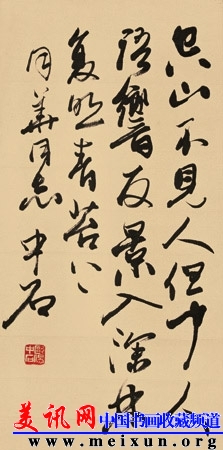 空山不見人但闻人
語響反景入深林
复照青苔上
月華同志 中石
美讯网 中国书画收藏频道
www.meixun.org